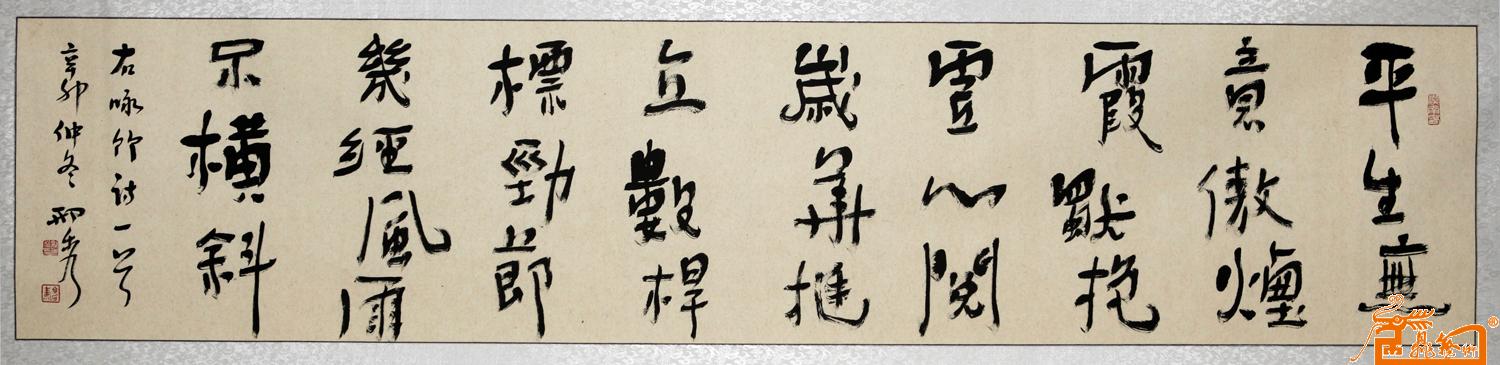 平生無
意傲煙
霞獨抱
虛心閱
歲華挺
立數桿
標勁節
幾經風雨
不橫斜
右咏竹詩一首
辛卯仲冬邢秀